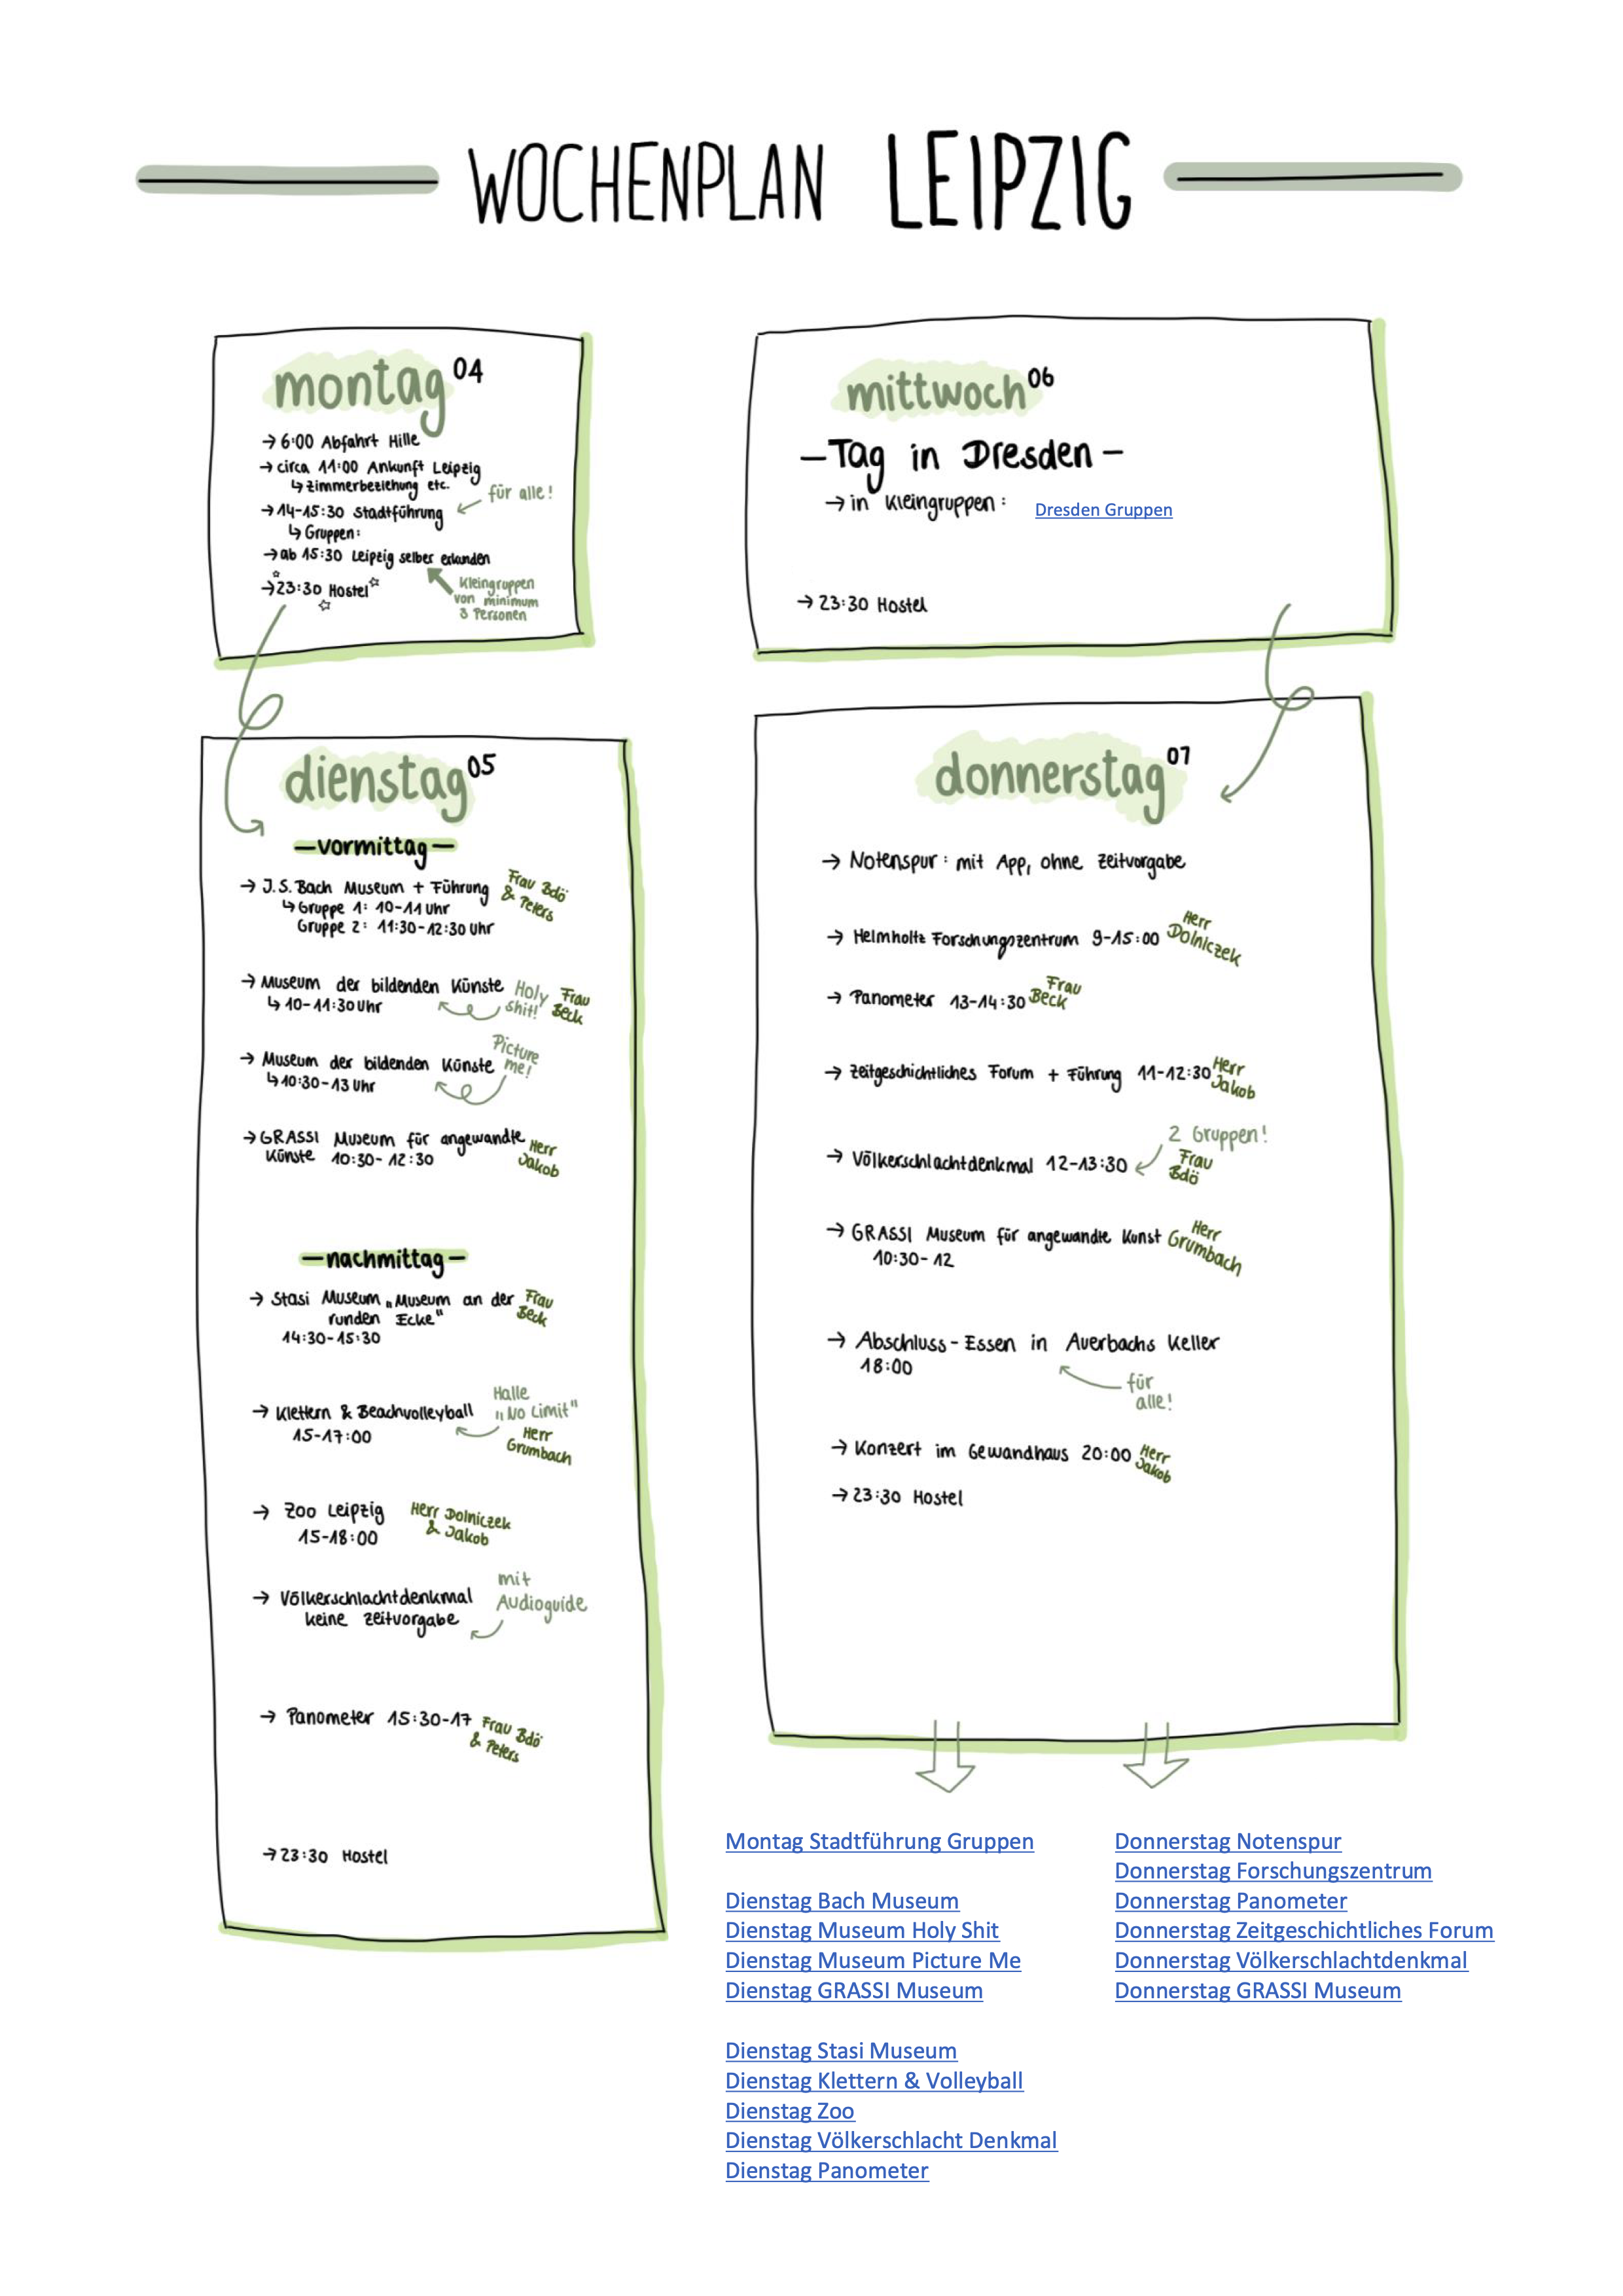 WOCHENPLAN LEIPZIG
montag 04
→ 6:00 Abfahrt Hille
→ circa 11:00 Ankunft Leipzig
↳ Zimmerbeziehung etc.
für alle!
→ 14-15:30 Stadtführung
↳ Gruppen:
→ ab 15:30 Leipzig selber erkunden
→ 23:30 Hostel
Kleingruppen
von minimum
3 Personen
dienstag 05
—vormittag—
→ J.S. Bach Museum + Führung
↳ Gruppe 1: 10-11 Uhr
Gruppe 2: 11:30-12:30 Uhr
Frau Bdö
& Peters
→ Museum der bildenden Künste
↳ 10-11:30 Uhr
Holy
shit!
Frau
Beck
→ Museum der bildenden Künste
↳ 10:30-13 Uhr
Picture
me!
→ GRASSI Museum für angewandte
Künste 10:30-12:30
Herr
Jakob
—nachmittag—
→ Stasi Museum „Museum an der
runden Ecke"
14:30-15:30
Frau
Beck
→ Klettern & Beachvolleyball
15-17:00
Halle
„No Limit"
Herr
Grumbach
→ Zoo Leipzig
15-18:00
Herr Dolniczek
& Jakob
→ Völkerschlachtdenkmal
keine Zeitvorgabe
mit
Audioguide
→ Panometer 15:30-17
Frau Bdö
& Peters
→ 23:30 Hostel
mittwoch 06
—Tag in Dresden—
→ in Kleingruppen: Dresden Gruppen
→ 23:30 Hostel
donnerstag 07
→ Notenspur: mit App, ohne Zeitvorgabe
→ Helmholtz Forschungszentrum 9-15:00
Herr
Dolniczek
→ Panometer 13-14:30
Frau
Beck
→ Zeitgeschichtliches Forum + Führung 11-12:30
Herr
Jakob
→ Völkerschlachtdenkmal 12-13:30
2 Gruppen!
Frau
Bdö
→ GRASSI Museum für angewandte Kunst
10:30-12
Herr
Grumbach
→ Abschluss-Essen in Auerbachs Keller
18:00
für
alle!
→ Konzert im Gewandhaus 20:00
Herr
Jakob
→ 23:30 Hostel
Montag Stadtführung Gruppen
Dienstag Bach Museum
Dienstag Museum Holy Shit
Dienstag Museum Picture Me
Dienstag GRASSI Museum
Dienstag Stasi Museum
Dienstag Klettern & Volleyball
Dienstag Zoo
Dienstag Völkerschlacht Denkmal
Dienstag Panometer
Donnerstag Notenspur
Donnerstag Forschungszentrum
Donnerstag Panometer
Donnerstag Zeitgeschichtliches Forum
Donnerstag Völkerschlachtdenkmal
Donnerstag GRASSI Museum